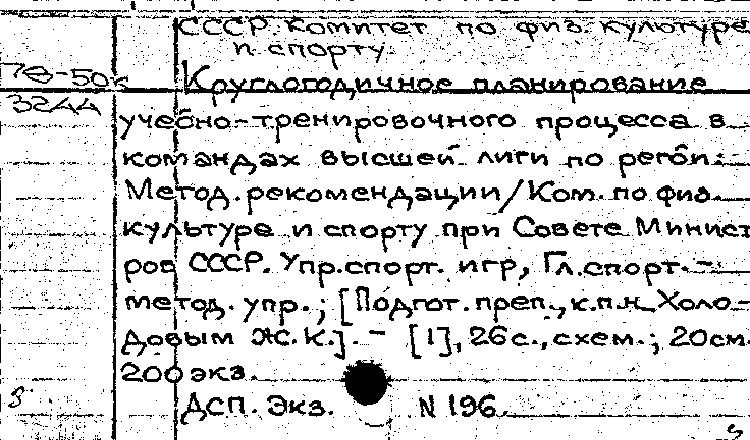 СССР. Комитет по физ. культуре
и спорту.
78-50к
3244
Круглогодичное планирование
учебно-тренировочного процесса в
командах высшей лиги по регби:
Метод. рекомендации/Ком. по физ.
культуре и спорту при Совете Минист
ров СССР. Упр. спорт. игр, Гл. спорт.-
метод. упр.; [Подгот. преп., к.п.н. Холо-
довым Ж.К.]. - [1], 26 с., схем.; 20 см.
200 экз.
ДСП. Экз. N 196.